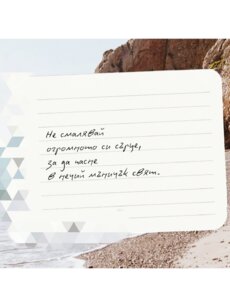 Не смалявай
огромното си сърце,
за да пасне
в нечий мъничък свят.